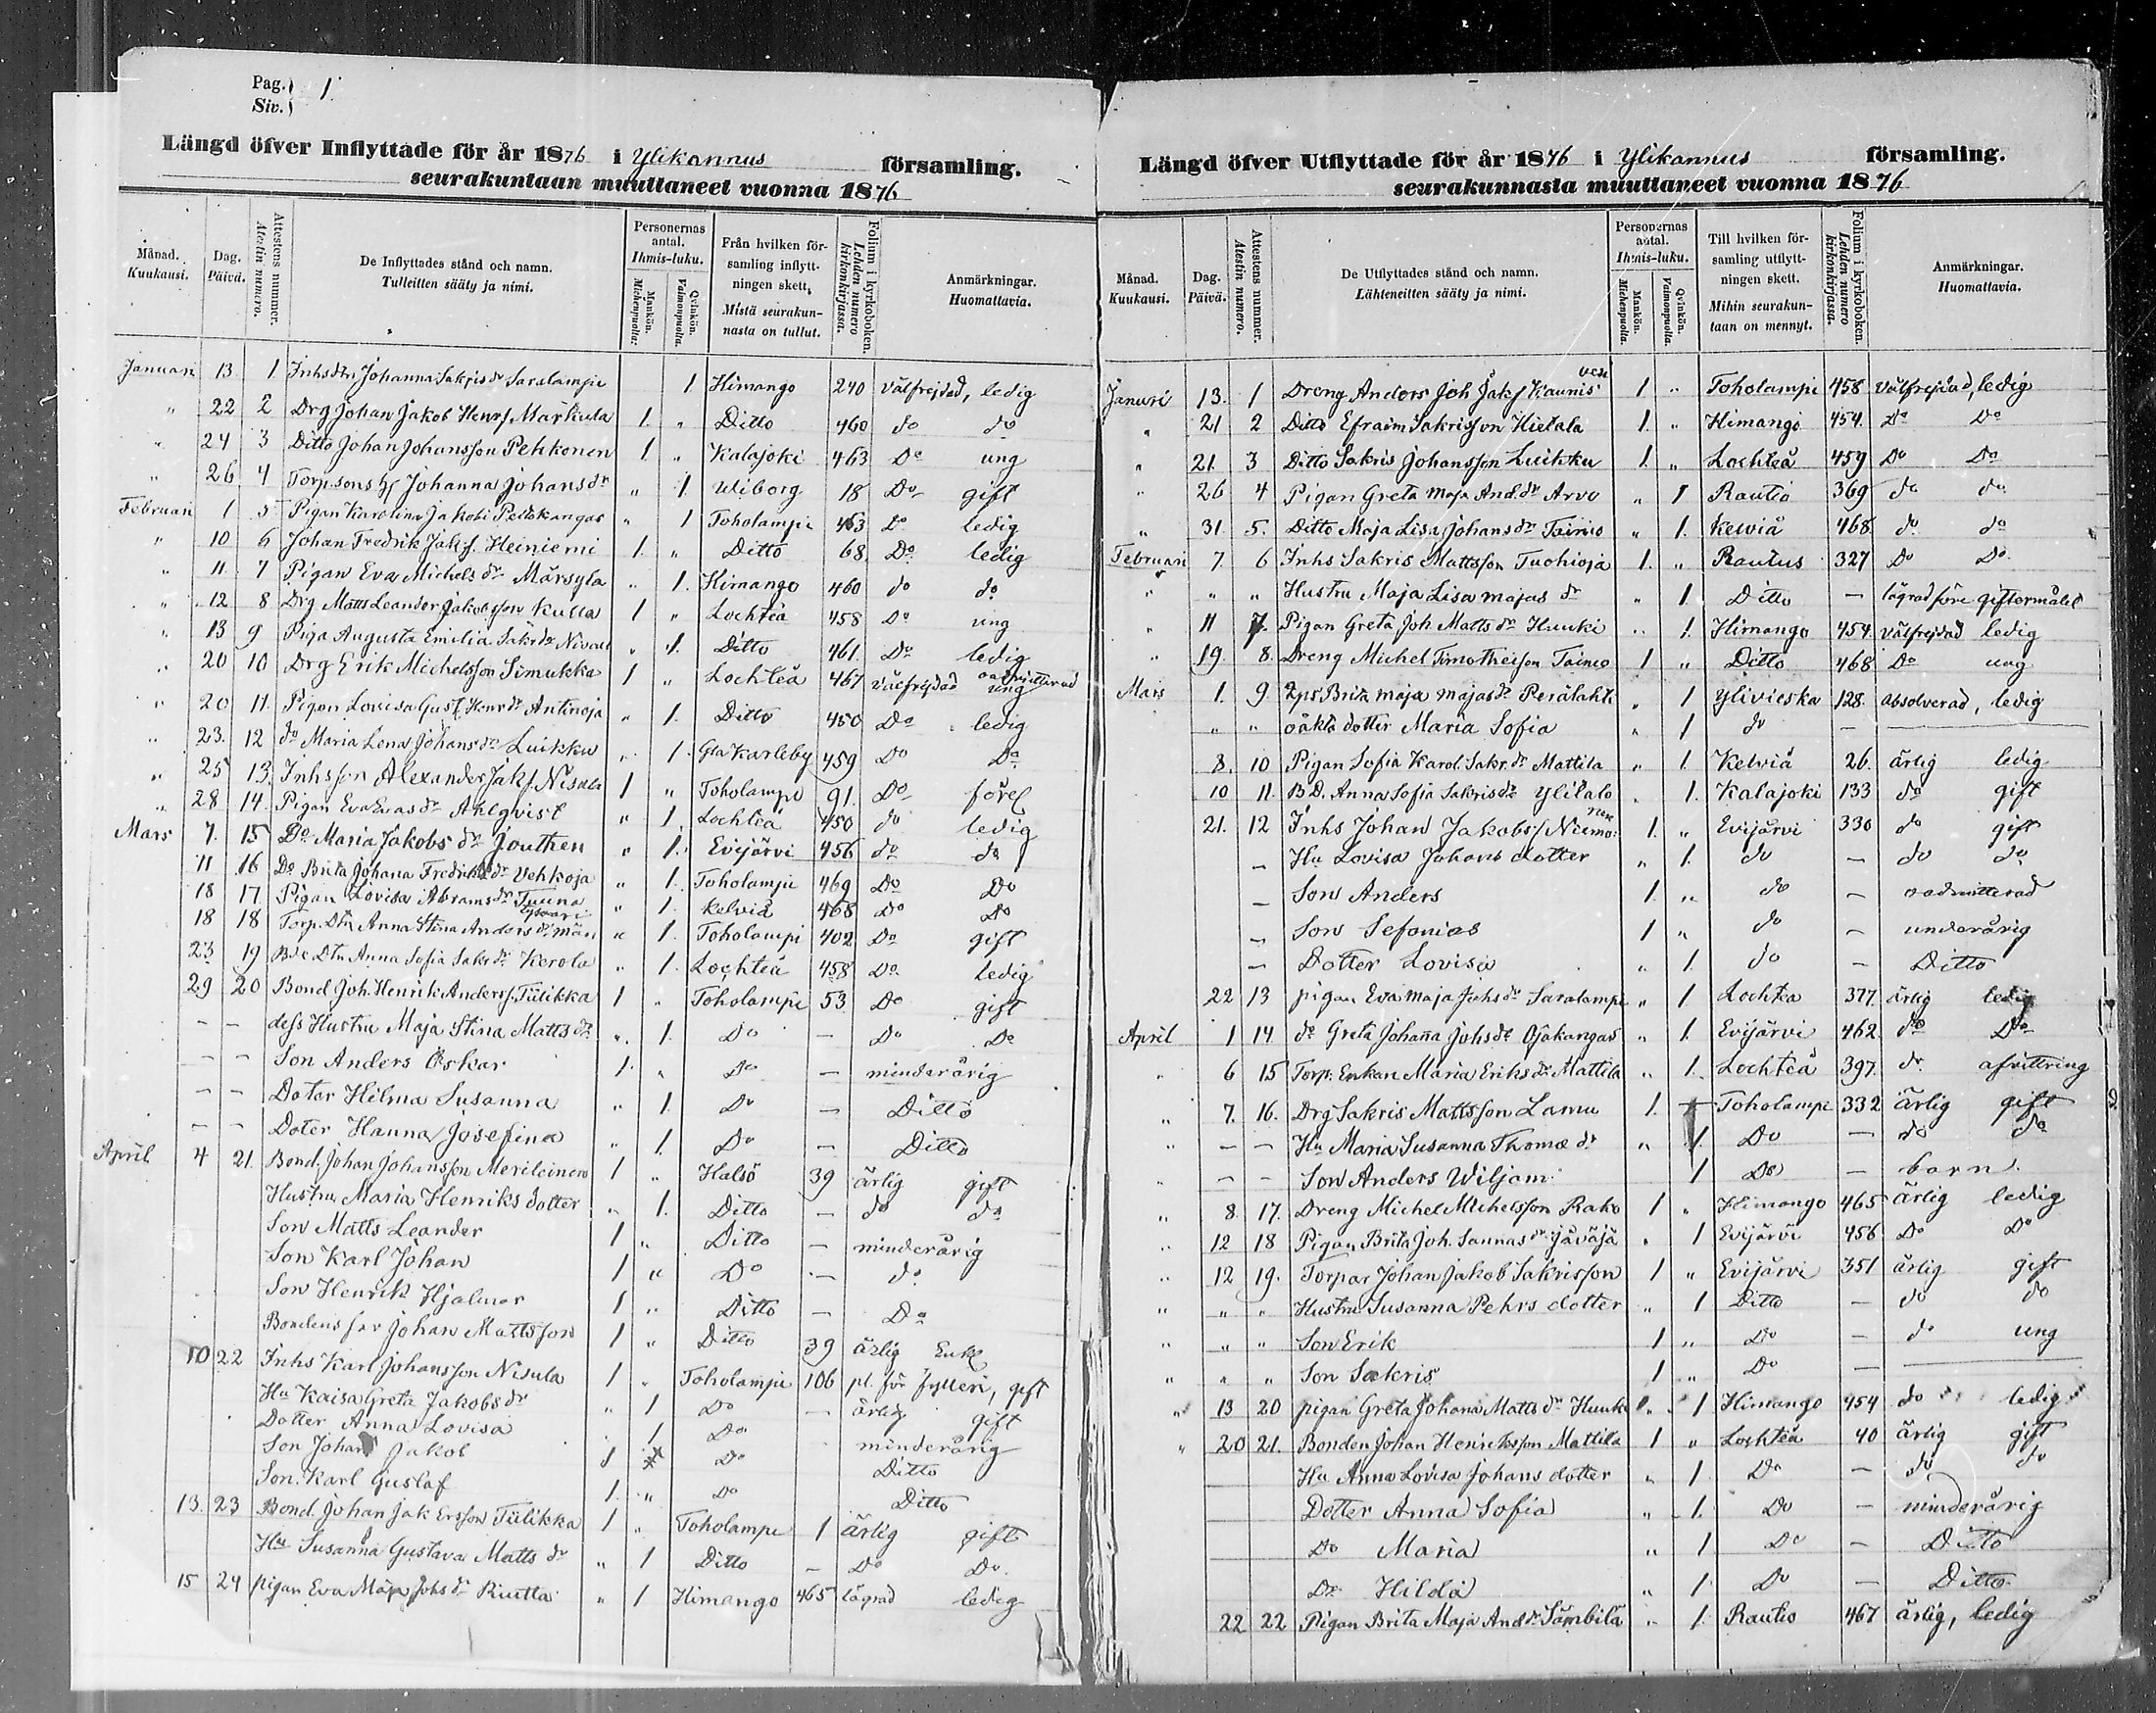 Pag. 1.
Siv.
Längd öfver Inflyttade för år 1876 i Ylikannus församling.
seurakuntaan muuttaneet vuonna 1876
Månad. Kuukausi. Dag. Päivä. Attestens nummer. Atestin numero. De Inflyttades stånd och namn. Tulleitten sääty ja nimi. Personernas antal. Ihmis-luku. Mankön. Miehenpuolia. Qvinkön. Vaimonpuolia. Från hvilken församling inflyttningen skett. Mistä seurakunnasta on tullut. Folium i kyrkoboken. Lehden numero kirkonkirjassa. Anmärkningar. Huomattavia.
Januari 13 1 Inhsdtn Johanna Sakris dr Saralampi 1 Himango 240 välfrejdad, ledig
" 22 2 Drg Johan Jakob Henrs Märkula 1. " Ditto 460 do do
" 24 3 Ditto Johan Johansson Pehkonen 1 " Kalajoki 463 Do ung
" 26 4 Torp.sons H Johanna Johans dr " 1. Wiborg 18 Do gift
Februari 1 5 Pigan Karolina Jakobi Petskangas " 1 Toholampi 463 Do ledig
" 10 6 Johan Fredrik Jak.s. Heiniemi 1. " Ditto 68 Do ledig
" 11 7 Pigan Eva Michels dr Märsylä " 1. Himango 460 do do
" 12 8 Drg Matts Leander Jakobsson Kulla 1 " Lochteå 458 Do ung
" 13 9 Piga Augusta Emilia Sakr dr Nivala " 1. Ditto 461. Do ledig
" 20 10 Drg Erik Michelsson Simukka 1 " Lochteå 467 välfrejdad oadmitterad ung
" 20 11. Pigan Lovisa Gust. Henr dr Antinoja " 1. Ditto 450 Do ledig
" 23. 12 do Maria Lena Johans dr Luikku " 1. Gla Karleby 459 Do Do
" 25 13. Inhsson Alexander Jaks Nisula 1 " Toholampi 91. Do förel
" 28 14. Pigan Eva Evas dr Ahlqvist " 1. Lochteå 450 do ledig
Mars 7. 15 Do Maria Jakobs dr Jouthen " 1. Evijärvi 456 do do
11 16 Do Brita Johana Fredriks dr Vehkoja " 1. Toholampi 469 Do Do
18 17. Pigan Lovisa Abrams dr Tuuna " 1. Kelviå 468 Do Do
18 18 Torp. Dtn Anna Stina Anders dr " 1. Toholampi 402 Do gift
23 19 Bde Dtn Anna Sofia Sakr dr Kerola " 1. Lochteå 458 Do ledig
29 20 Bond Joh. Henrik Anders. Tiilikka 1 " Toholampi 53 Do gift
— — dess Hustru Maja Stina Matts dr " 1. Do — Do Do
— — Son Anders Oskar 1. " Do — minderårig
— — Doter Hilma Susanna " 1. Do — Ditto
— — Doter Hanna Josefina " 1. Do — Ditto
April 4 21. Bond. Johan Johansson Meriläinen 1 " Halsö 39 ärlig gift
Hustru Maria Henriks dotter " 1. Ditto — do do
Son Matts Leander 1 " Ditto — minderårig
Son Karl Johan 1 " Do — do
Son Henrik Hjalmar 1 " Ditto — Do
Bondens far Johan Mattsson 1 " Ditto 39 ärlig Enkl
10 22 Inhs Karl Johansson Nisula 1 " Toholampi 106 pl. för fylleri, gift
Hu Kaisa Greta Jakobs dr " 1 Do — ärlig gift
Dotter Anna Lovisa 1 Do minderårig
Son Johan Jakob 1 Do Ditto
Son. Karl Gustaf 1. " Do Ditto
13. 23 Bond. Johan Jak Ersson Tiilikka 1 " Toholampi 1 ärlig gift
Hu Susanna Gustava Matts dr " 1 Ditto — Do Do.
15 24 pigan Eva Maja Johs dr Riutta " 1 Himango 465 lägrad ledig
Längd öfver Utflyttade för år 1876 i Ylikannus församling.
seurakunnasta muuttaneet vuonna 1876
Månad. Kuukausi. Dag. Päivä. Attestens nummer. Atestin numero. De Utflyttades stånd och namn. Lähteneitten sääty ja nimi. Personernas antal. Ihmis-luku. Mankön. Miehenpuolia. Qvinkön. Vaimonpuolia. Till hvilken församling utflyttningen skett. Mihin seurakuntaan on mennyt. Folium i kyrkoboken. Lehden numero kirkonkirjassa. Anmärkningar. Huomattavia.
Januri 13. 1 Dreng Anders Joh Jaks Kaunis vesi 1 " Toholampi 458 välfrejdad, ledig
" 21 2 Ditto Efraim Sakrisson Hietala 1. " Himango 454. Do Do
" 21. 3 Ditto Sakris Johansson Luikku 1. " Lochteå 459 Do Do
" 26 4 Pigan Greta Maja And. dr Arvo " 1 Rautio 369 do do
" 31. 5. Ditto Maja Lisa Johans dr Tainio " 1. Kelviå 468 do do
Februari 7. 6 Inhs Sakris Mattsson Tuohioja 1. " Rautus 327 Do Do
" " " Hustru Maja Lisa Majas dr " 1. Ditto — lägrad före giftermålet
" 11 7. Pigan Greta Joh Matts dr Huuki " 1. Himango 454 välfrejdad ledig
" 19. 8. Dreng Michel Timotheison Tainio 1 " Ditto 468 Do ung
Mars 1. 9. Brita Maja Majas dr Perälahti " 1 Ylivieska 128. absolverad, ledig
" " oäkta dotter Maria Sofia " 1 do —
8. 10 Pigan Sofia Karol. Sakr. dr Mattila " 1. Kelviå 26. ärlig ledig
10 11. B.D. Anna Sofia Sakris dr Ylitalo " 1. Kalajoki 133 do gift
21. 12 Inhs Johan Jakobs. Niemo: nen 1. " Evijärvi 330 do gift
— Hu Lovisa Johans dotter " 1. do — do do
— Son Anders 1. " do — oadmitterad
— Son Sefanias 1 " do — underårig
— Dotter Lovisa " 1. do — Ditto
22 13 pigan Eva Maja Johs dr Saralampi " 1 Lochtea 377. ärlig ledig
April 1 14 do Greta Johana Johs dr Ojakangas " 1. Evijärvi 462. do Do
" 6 15 Torp. Enkan Maria Eriks dr Mattila " 1. Lochteå 397. do afvittring
" 7. 16. Drg Sakris Mattsson Lamu 1. Toholampi 332 ärlig gift
" — — Hu Maria Susanna Thomæ dr " 1 Do — do do
" — — Son Anders Wiljam 1 Do — barn.
" 8. 17. Dreng Michel Michelsson Rako 1 " Himango 465 ärlig ledig
" 12 18 Pigan Brita Joh. Sannas dr Jäväjä " 1 Evijärvi 456 Do Do
" 12 19. Torpar Johan Jakob Sakrisson 1 " Evijärvi 351 ärlig gift
" " " Hustru Susanna Pehrs dotter " 1 Ditto — do do
" " " Son Erik 1 " Do — do ung
" " " Son Sakris 1 " Do —
" 13 20 pigan Greta Johana Matts dr Huuki " 1 Himango 454 do ledig
" 20 21. Bonden Johan Henriksson Mattila 1 " Lochteå 40 ärlig gift
Hu Anna Lovisa Johans dotter " 1. Do — do do
Dotter Anna Sofia " 1. Do — minderårig
Do Maria " 1 Do — Ditto
Do Hilda " 1 Do — Ditto
22 22 Pigan Brita Maja And dr Sämbilä " 1. Rautio 467 ärlig, ledig